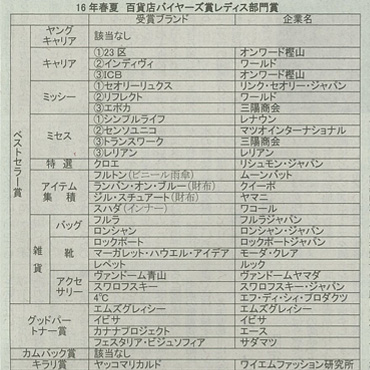 16年春夏 百貨店バイヤーズ賞レディス部門賞
受賞ブランド 企業名
ベストセラー賞
ヤングキャリア 該当なし
キャリア ①23区 オンワード樫山
②インディヴィ ワールド
③ICB オンワード樫山
ミッシー ①セオリーリュクス リンク・セオリー・ジャパン
②リフレクト ワールド
③エポカ 三陽商会
ミセス ①シンプルライフ レナウン
②センソユニコ マツオインターナショナル
③トランスワーク 三陽商会
③レリアン レリアン
特選 クロエ リシュモン・ジャパン
アイテム集積 フルトン(ビニール雨傘) ムーンバット
ランバン・オン・ブルー(財布) クイーポ
ジル・スチュアート(財布) ヤマニ
スハダ(インナー) ワコール
雑貨
バッグ フルラ フルラジャパン
ロンシャン ロンシャン・ジャパン
靴 ロックポート ロックポートジャパン
マーガレット・ハウエル・アイデア モーダ・クレア
レペット ルック
アクセサリー ヴァンドーム青山 ヴァンドームヤマダ
スワロフスキー スワロフスキー・ジャパン
4℃ エフ・ディ・シィ・プロダクツ
グッドパートナー賞 エムズグレイシー エムズグレイシー
イビサ イビサ
カナナプロジェクト エース
フェスタリア・ビジュソフィア サダマツ
カムバック賞 該当なし
キラリ賞 ヤッコマリカルド ワイエムファッション研究所